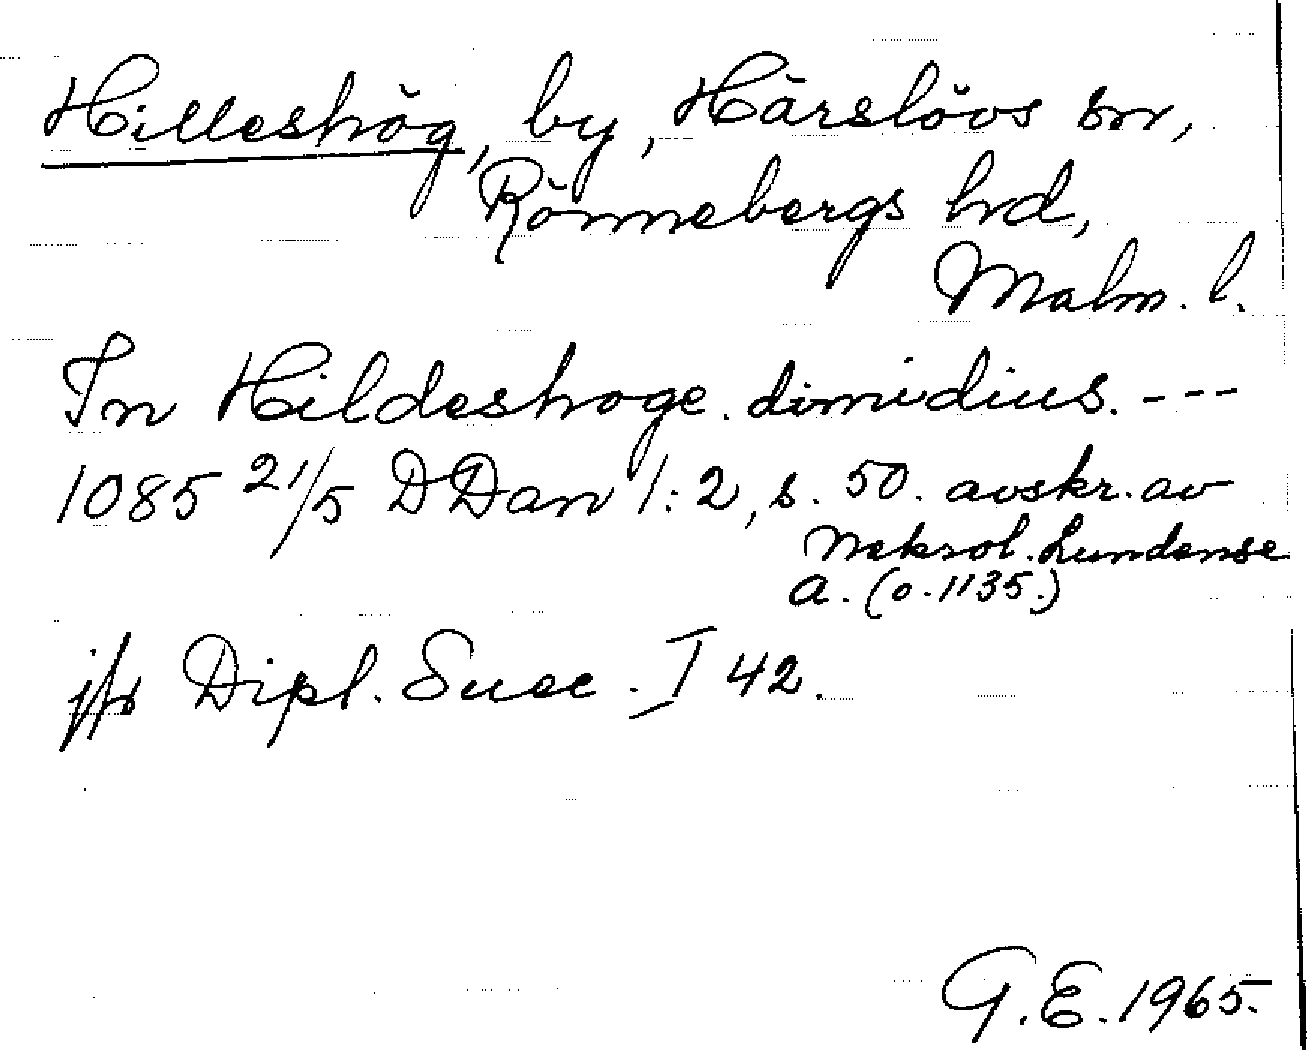 Hilleshög, by, Härslövs sn,
Rönnebergs hd,
Malm. l.
In Hildeshoge dimidius. ---
1085 21/5 DDan 1:2, s. 50. avskr. av
Nekrol. Lundense
a. (o. 1135.)
jfr Dipl. Suec. I 42.
G.E. 1965.